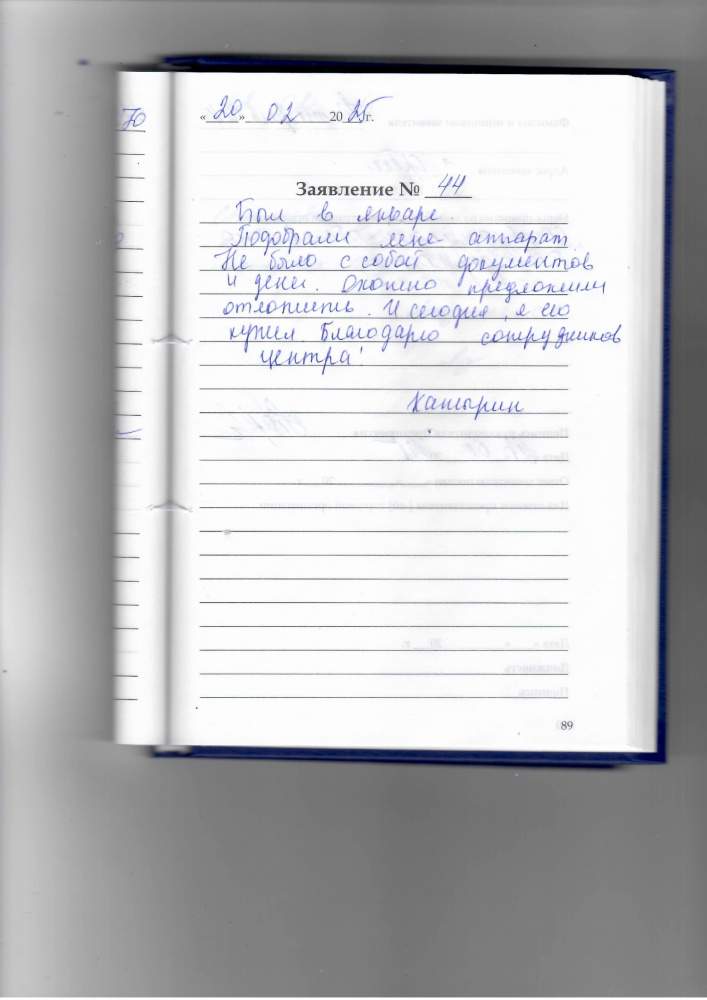 «20» 02 2025г.
Заявление № 44
Был в январе.
Подобрали мне аппарат.
Не было с собой документов
и денег. Охотно предложили
отложить. И сегодня, я его
купил. Благодарю сотрудников
центра!
Катырин
89